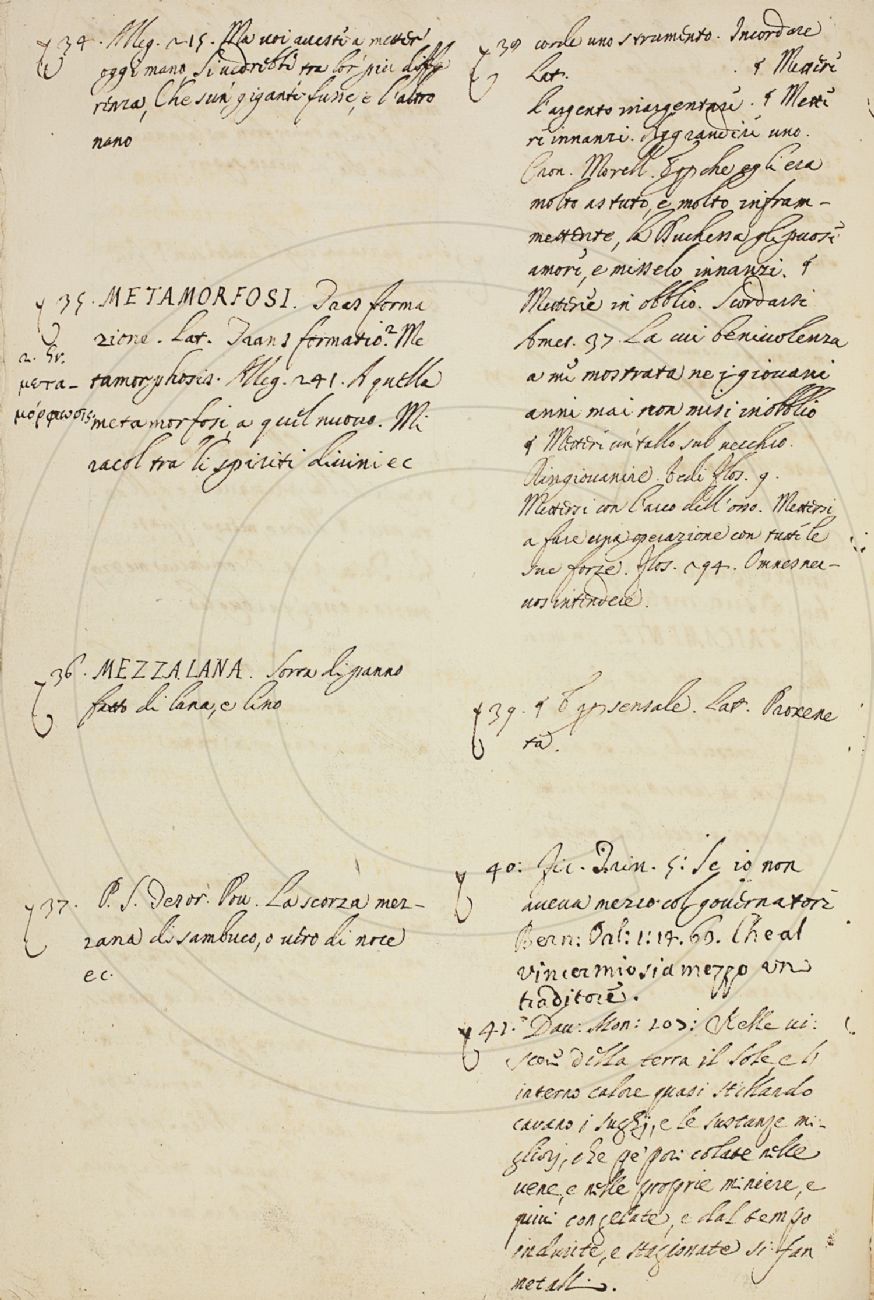 34. Alleg. 215. Ma voi aveste a metter
oggi mano, Si vedrebbe tra lor più diffe
renza, Che s'un gigante fusse, e l'altro
nano
35. METAMORFOSI. Trasforma
zione. Lat. Transformatio? Me
2. Gr.
μετα-
μόρφωσις
tamorphosis. Alleg. 241. A quella
metamorfosi, a quel nuovo. Mi
racol tra li spiriti divini ec
36. MEZZALANA. Sorta di panno
fatto di lana, e lino
37. P. S. Dezor. Pov. La scorza mez-
zana di sambuco, o vero di noce
ec
38 corde uno strumento. Incordare
Lat. ¶ Mettere
l'argento inargentare. ¶ Mette
re innanzi. Aggrandire uno.
Cron. Morell. che egli era
molto astuto, e molto infram-
mettente, la Duchessa gli puose
amore, e misselo innanzi. ¶
Mettere in obblio. Scordarsi
Amet. 37. La cui benivolenza
a me mostrata ne i giovani
anni mai non misi in obblio
¶ Mettere un tallo sul vecchio.
Ringiovanire. Vedi Flos. 9.
Mettersi con l'arco dell'osso. Mettersi
a fare una operazione con tutte le
sue forze. Flos. 294. Omnes ner-
vos intendere.
39. ¶ sensale. Lat. Proxene
ta.
40: Fic. Trin. 5: Se io non
aveva mezzo col governatore
Bern: Orl: 1: 14. 60. Che al
vincer mio sia mezzo un
traditore.
41. Dav: Mon: 103: Nelle vi:
scere della terra il Sole, e l'
interno calore quasi stillando
cavano i sughi, e le sustanze mi-
gliori, che pe' pori colate nelle
vene, e nelle proprie miniere, e
quivi congelate, e dal tempo
indurite, e stagionate si fan
metalli.